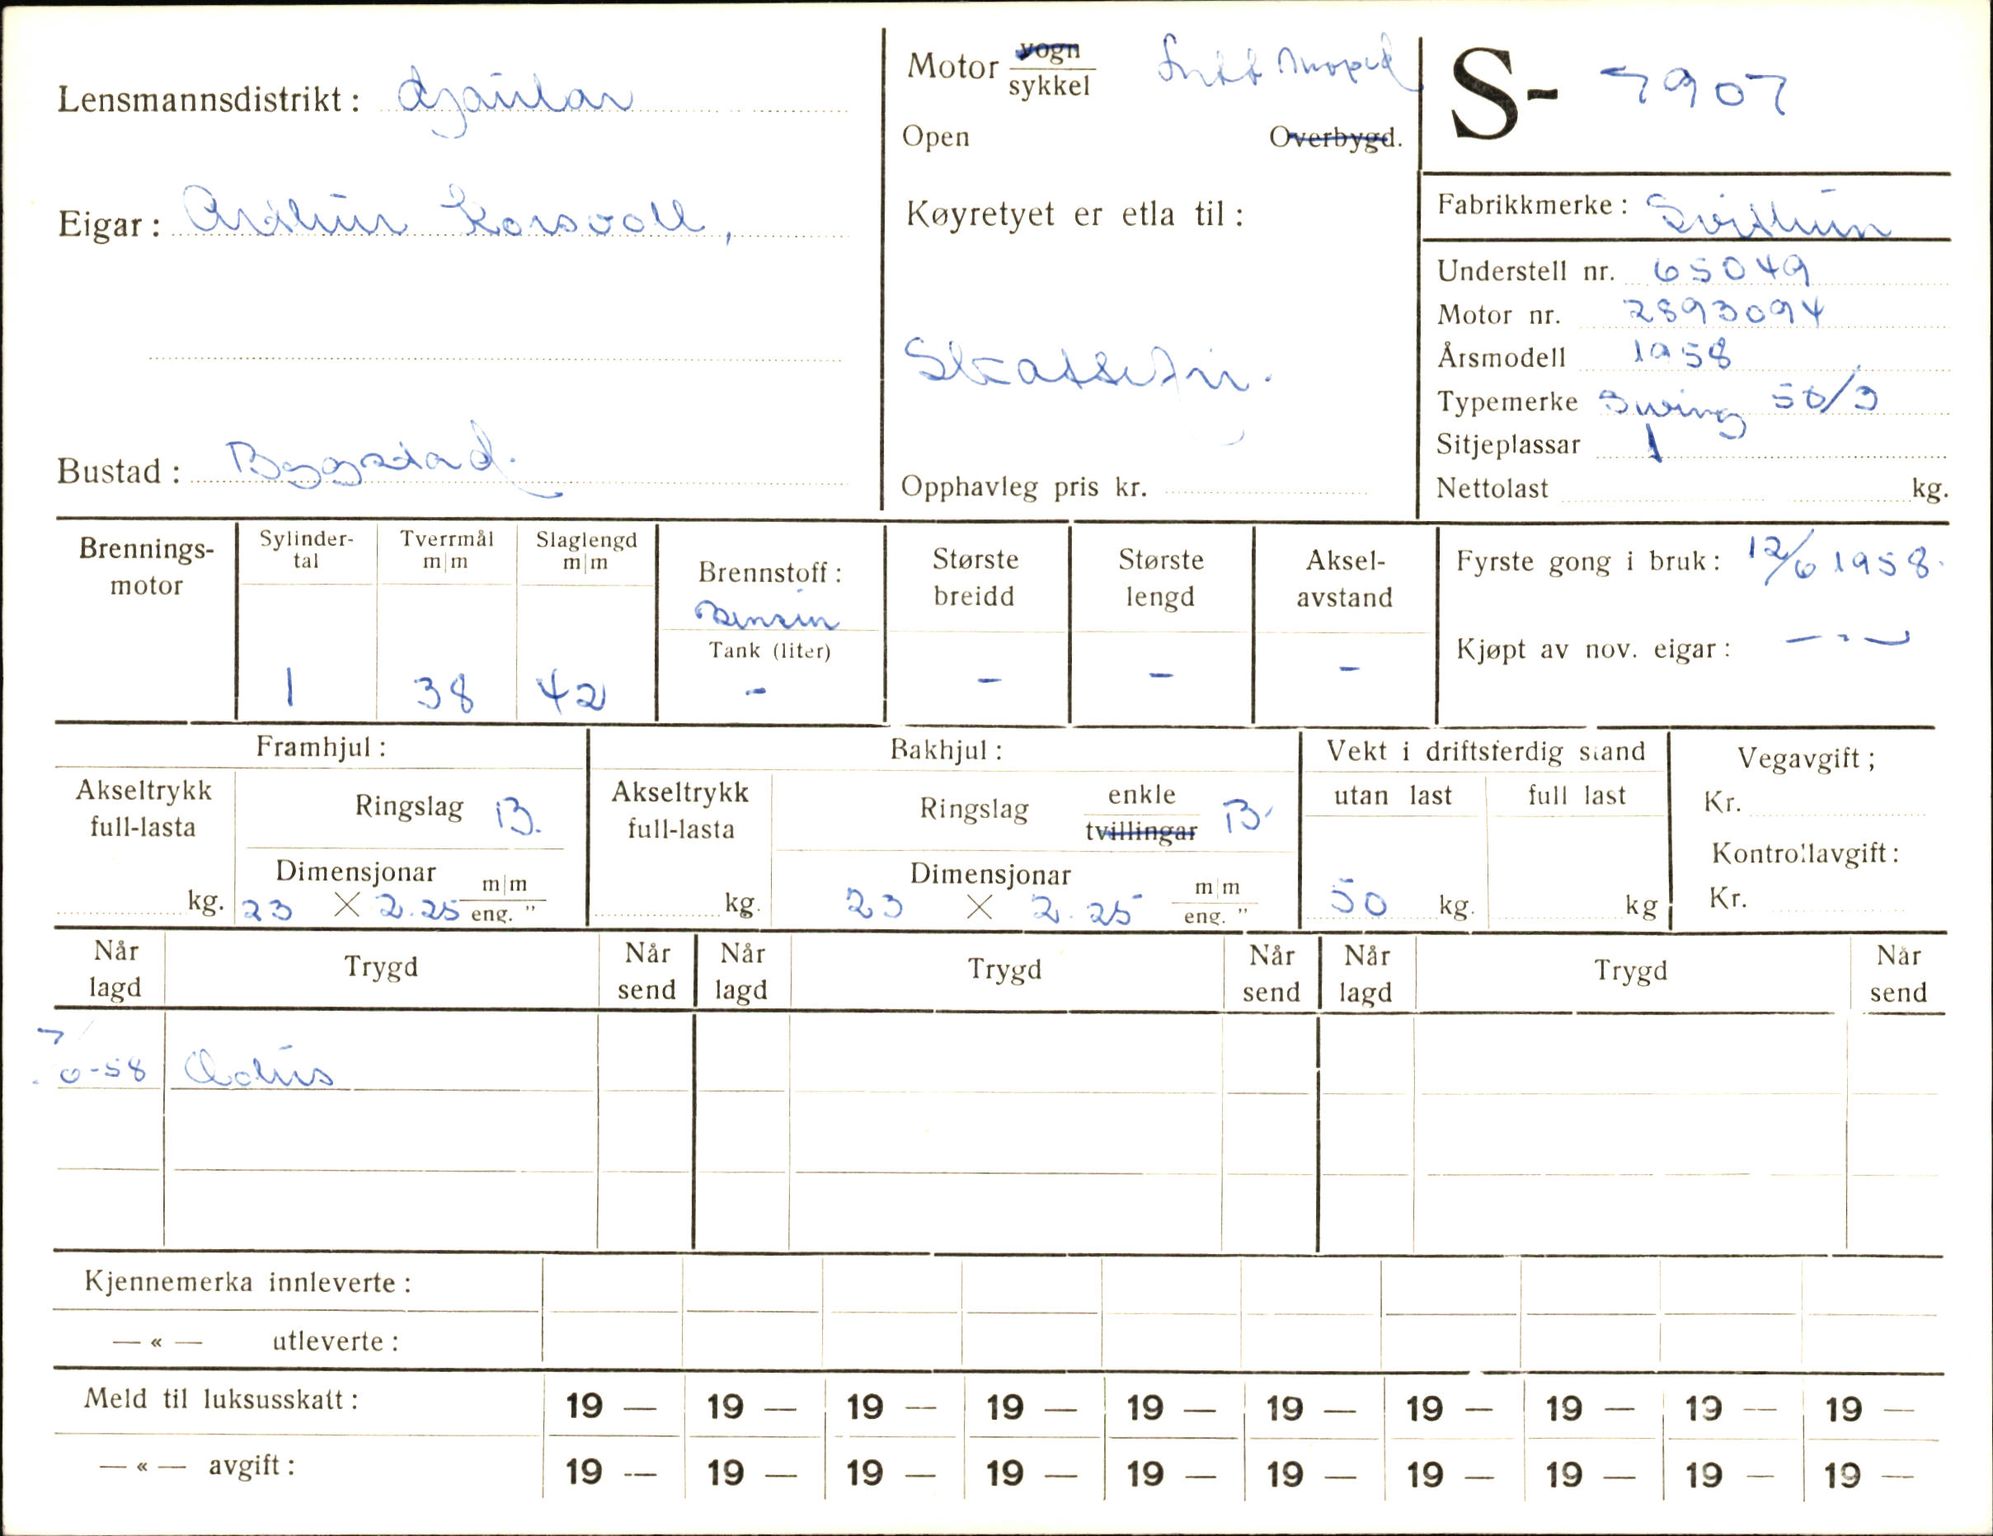 Lensmannsdistrikt: Gjaular
Eigar: Arthur Korsvoll,
Bustad: Bygstad.
Motor vogn/sykkel Lett moped
Open Overbygd.
Køyretyet er etla til:
Skattefri.
Opphavleg pris kr.
S- 7907
Fabrikkmerke: Svithun
Understell nr. 65049
Motor nr. 2893094
Årsmodell 1958
Typemerke Swing 50/3
Sitjeplassar 1
Nettolast kg.
Brennings-motor
Sylinder-tal 1
Tverrmål m|m 38
Slaglengd m|m 42
Brennstoff: Bensin
Tank (liter) -
Største breidd -
Største lengd -
Aksel-avstand -
Fyrste gong i bruk: 12/6 1958.
Kjøpt av nov. eigar: — " —
Framhjul:
Akseltrykk full-lasta kg.
Ringslag B.
Dimensjonar 23 X 2.25 m|m eng. "
Bakhjul:
Akseltrykk full-lasta kg.
Ringslag enkle tvillingar B.
Dimensjonar 23 X 2.25 m|m eng. "
Vekt i driftsferdig stand
utan last 50 kg.
full last kg
Vegavgift;
Kr.
Kontrollavgift:
Kr.
Når lagd Trygd Når send Når lagd Trygd Når send Når lagd Trygd Når send
7/6-58
Kjennemerka innleverte:
— « — utleverte:
Meld til luksusskatt: 19 — 19 — 19 — 19 — 19 — 19 — 19 — 19 — 19 — 19 —
— « — avgift: 19 — 19 — 19 — 19 — 19 — 19 — 19 — 19 — 19 — 19 —